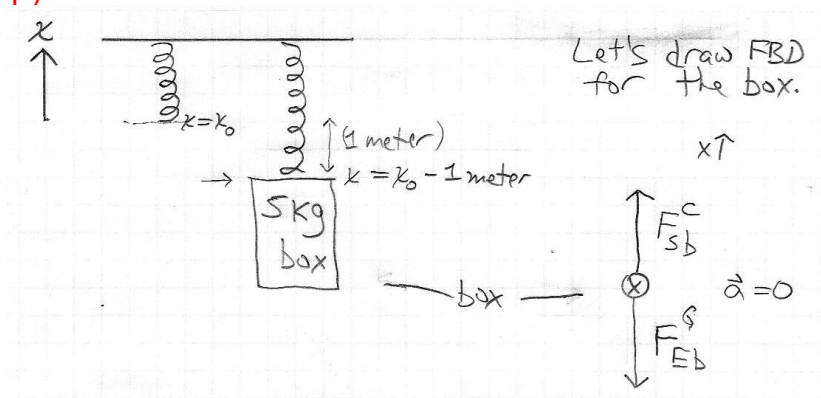 x
Let's draw FBD
for the box.
x=x₀
(1 meter)
x↑
→ x = x₀ - 1 meter
5kg
box
F_sb^c
box
a⃗ = 0
F_Eb^G